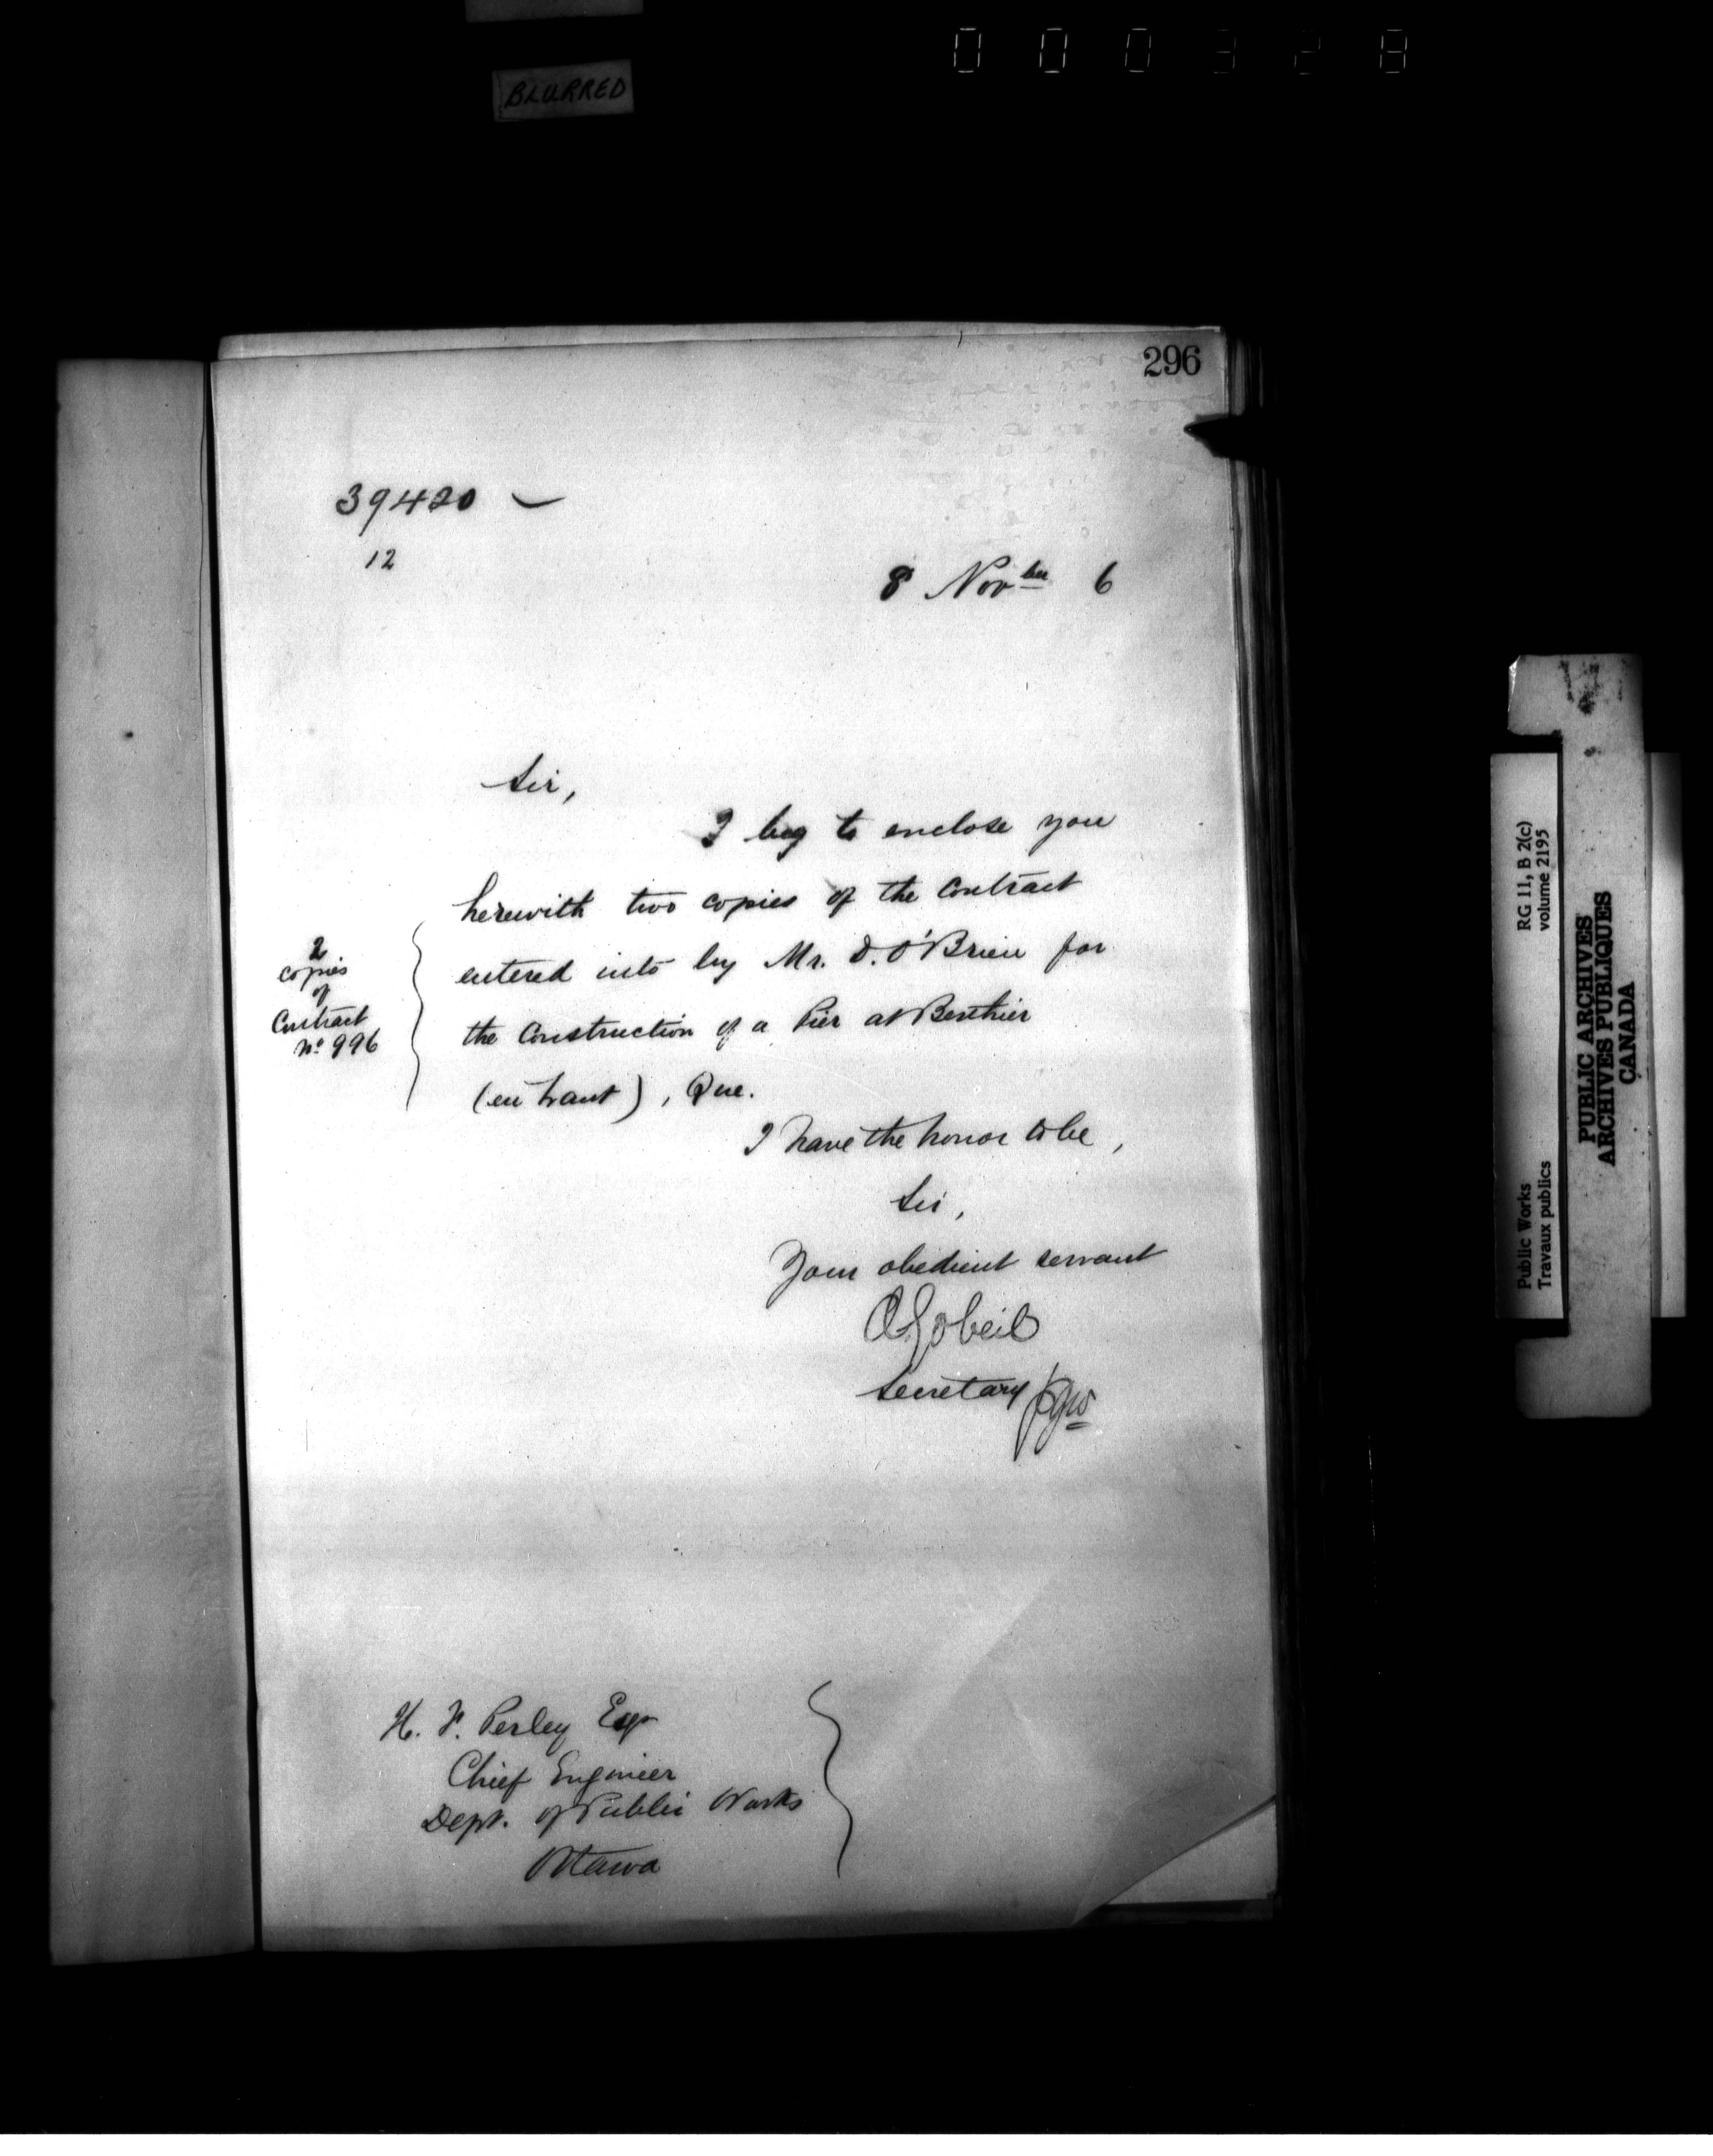 000328
BLURRED
296
39420
12
8 Novber 6
Sir,
I beg to enclose you
herewith two copies of the Contract
entered into by Mr. D. O'Brien for
the Construction of a Pier at Berthier
(en haut), Que.
2
copies
of
Contract
No 996
I have the honor to be,
Sir,
Your obedient servant
A Gobeil
Secretary
H. F. Perley Esqr
Chief Engineer
Dept. of Public Works
Ottawa
RG 11, B 2(c)
volume 2195
Public Works
Travaux publics
PUBLIC ARCHIVES
ARCHIVES PUBLIQUES
CANADA